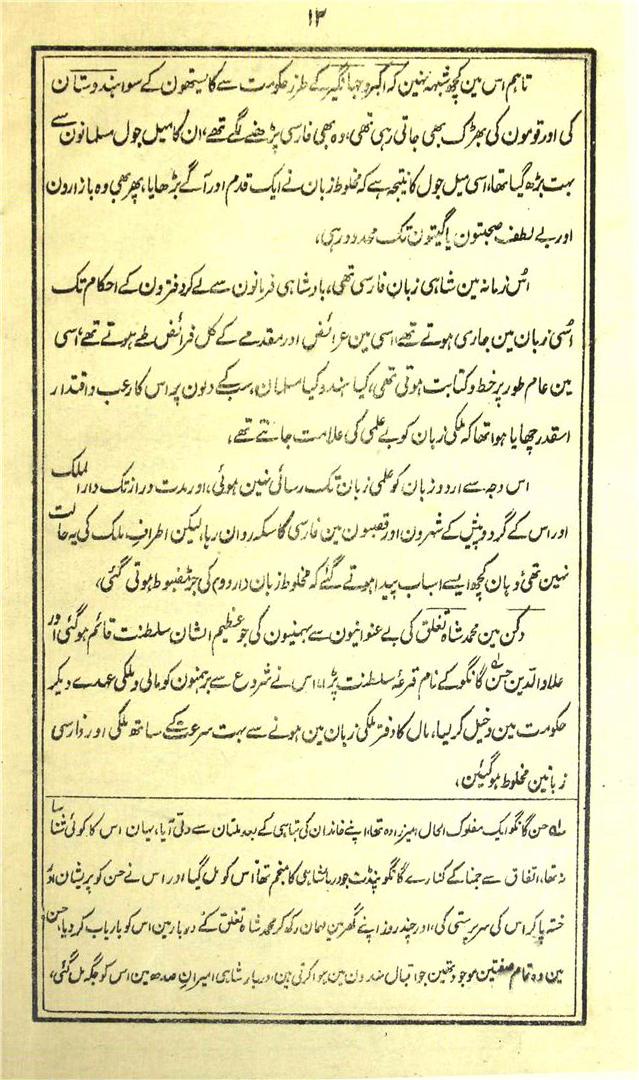 ۱۳
تاہم اس مین کچھ شبہہ نہین کہ اکبر و جہانگیر کے طرز حکومت سے کایستھون کے سوا ہندوستان
کی اور قومون کی بھڑک بھی جاتی رہی تھی، وہ بھی فارسی پڑھنے لگے تھے، ان کا میل جول مسلمانون سے
بہت بڑھ گیا تھا، اسی میل جول کا نتیجہ ہے کہ مخلوط زبان نے ایک قدم اور آگے بڑھایا، پھر بھی وہ بازارون
اور بے لطف صحبتون یا گیتون تک محدود رہی،
اُس زمانہ مین شاہی زبان فارسی تھی، بادشاہی فرمانون سے لے کر دفترون کے احکام تک
اُسی زبان مین جاری ہوتے تھے، اسی مین عرائض اور مقدمے کے کل فرائض طے ہوتے تھے، اسی
مین عام طور پر خط و کتابت ہوتی تھی، کیا ہندو کیا مسلمان، سب کے دلون پر اس کا رعب و اقتدار
اسقدر چھایا ہوا تھا کہ ملکی زبان کو بے علمی کی علامت جانتے تھے،
اس وجہ سے اردو زبان کو علمی زبان تک رسائی نہین ہوئی، اور مدت دراز تک دارالملک
اور اس کے گرد و پیش کے شہرون اور قصبون مین فارسی کا سکہ روان رہا، لیکن اطراف ملک کی یہ حالت
نہین تھی، وہان کچھ ایسے اسباب پیدا ہوتے گئے کہ مخلوط زبان دار دوم کی جڑ مضبوط ہوتی گئی،
دکن مین محمد شاہ تغلق کی بے عنوانیون سے بہمنیون کی جو عظیم الشان سلطنت قائم ہو گئی اور
علاؤالدین حسن گانگو کے نام قرعۂ سلطنت پڑا، اس نے شروع سے برہمنون کو مالی و ملکی عہدے دیکر
حکومت مین دخیل کر لیا، مال کا دفتر ملکی زبان مین ہونے سے بہت سرعت کے ساتھ ملکی اور فارسی
زبانین مخلوط ہو گئین،
لہ حسن گانگو ایک مفلوک الحال امیرزادہ تھا، اپنے خاندان کی تباہی کے بعد ملتان سے دلی آیا، یہان اس کا کوئی شناسا
نہ تھا، اتفاق سے جمنا کے کنارے گانگو پنڈت جو دربار شاہی کا منجم تھا، اس کو مل گیا اور اس نے حسن کو پریشان اور
خستہ پا کر اس کی سرپرستی کی، اور چند روز اپنے گھر مین مہمان رکھ کر محمد شاہ تغلق کے دربار مین اس کو باریاب کر دیا، حسن
مین وہ تمام صفتین موجود تھین جو اقبال مندون مین ہوا کرتی ہین اور بار شاہی امیران صدہ مین اس کو جگہ مل گئی،